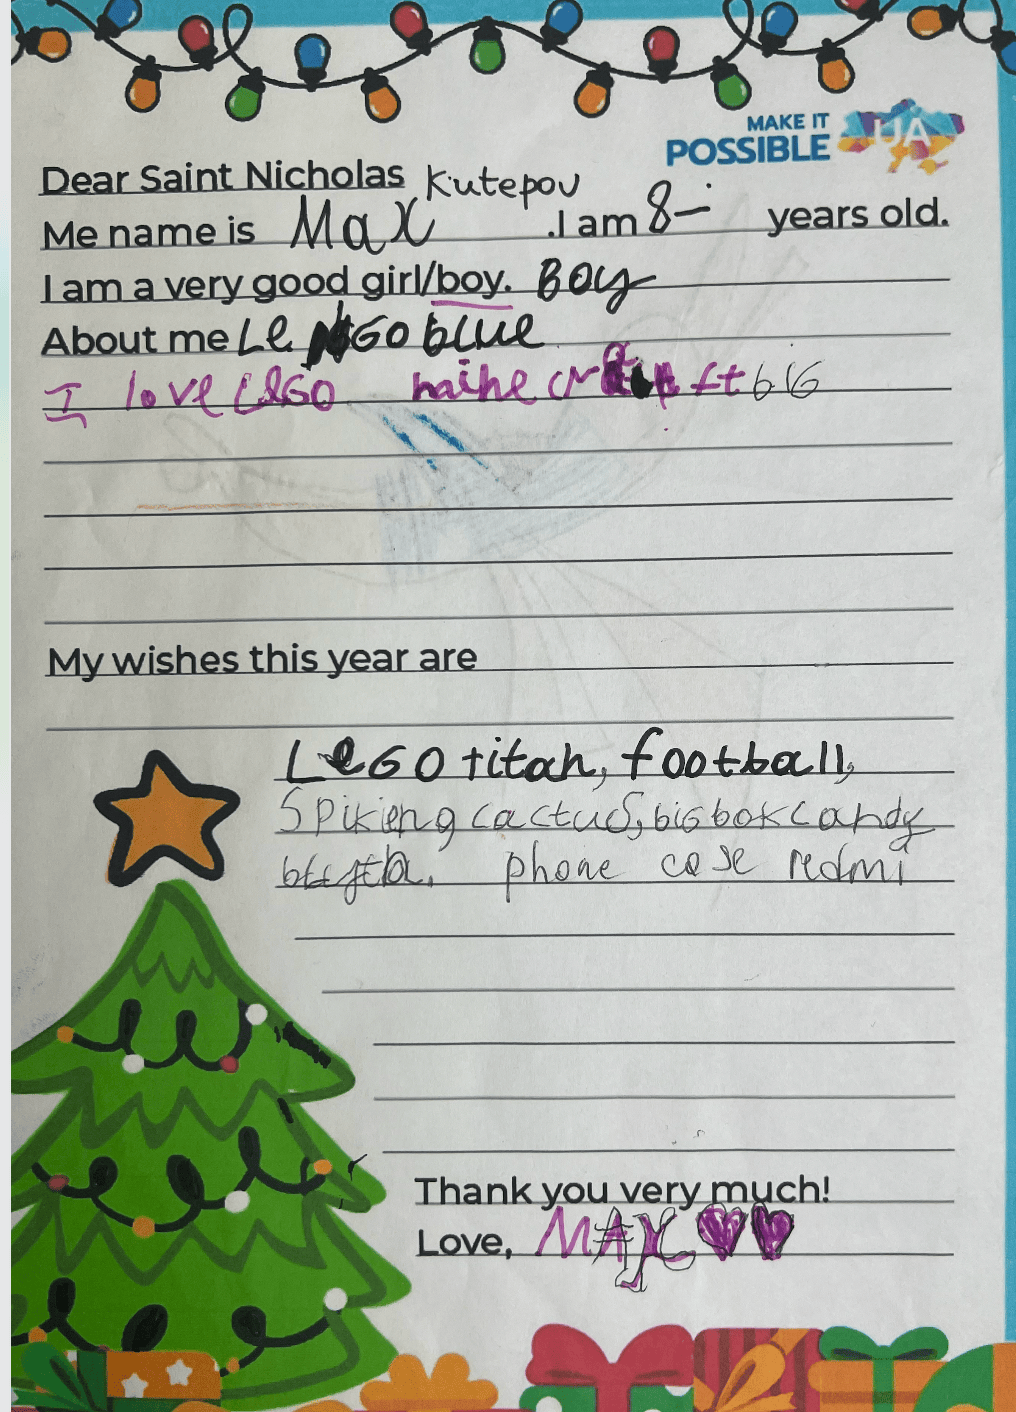 MAKE IT
POSSIBLE UA
Dear Saint Nicholas Kutepov
Me name is Max .I am 8 years old.
I am a very good girl/boy. Boy
About me Le GO blue
I love LeGO maine craft big
My wishes this year are
LeGO titan, football,
Spikieng cactus, big bok candy
phone case redmi
Thank you very much!
Love, MAX